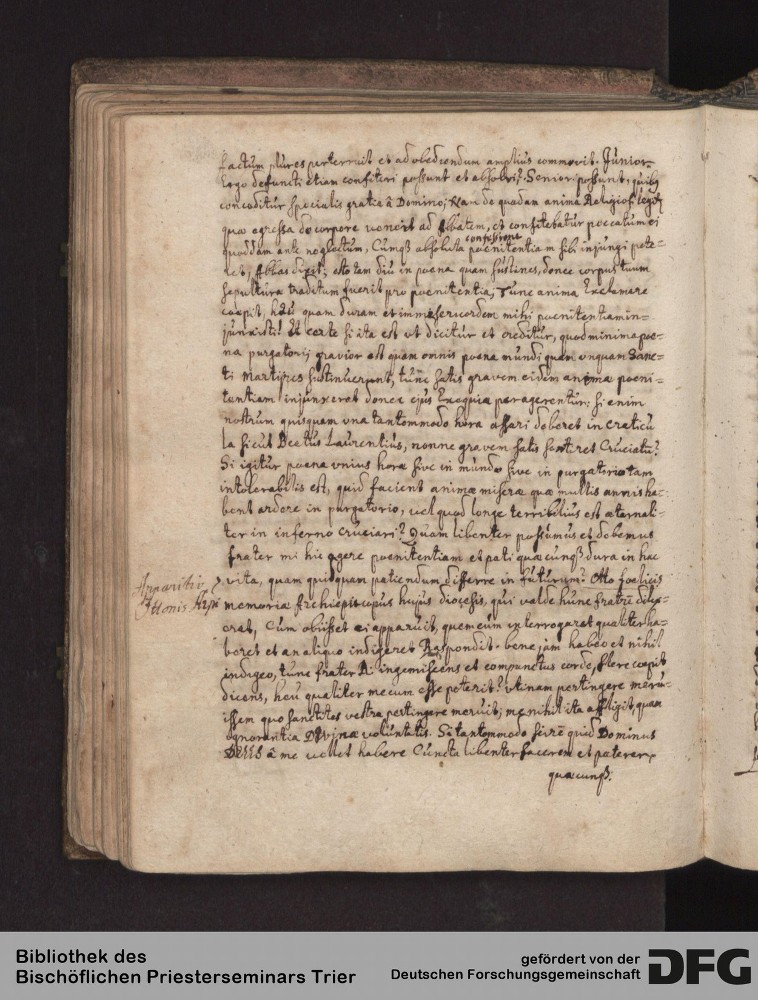 factum plures perterruit et ad obediendum amplius commovit. Junior
Ergo defuncti etiam confiteri possunt et absolvi? Senior possunt, quibg
conceditur specialis gratia â Domino; Nam de quadam anima Religiosi legitr
quæ egressa de corpore venerit ad Abbatem, et confitebatur peccatum ei
confessione
quoddam ante neglectum, Cumqß absoluta poenitentiam sibi injungi pete-
ret; Abbas dixit; esto tam diu in poena quam sustines, donec corpus tuum
sepulturæ traditum fuerit pro poenitentia; Tunc anima Exclamare
coepit, heu quam duram et immisericordem mihi poenitentiam in-
junxisti! Et certe si ita est ut dicitur et creditur, quod minima poe-
na purgatorij gravior est quam omnis poena mundi quam unquam Sanc-
ti Martyres sustinuerunt, tunc satis gravem eidem animæ poeni-
tentiam injunxerat donec ejus Exequiæ peragerentur; si enim
nostrum quisquam una tantommodo hora assari deberet in craticu
la sicut Beatus Laurentius, nonne gravem satis sentiret Cruciatū?
Si igitur poena unius horæ sive in mundo sive in purgatorio tam
intolerabilis est, quid facient animæ miseræ quæ multis annis ha-
bent ardere in purgatorio, vel quod longe terribilius est æternali-
ter in inferno cruciari? Quam libenter possumus et debemus
frater mi hic agere poenitentiam et pati quæcunqß dura in hac
vita, quam quidquam patiendum differre in futurum? Otto foelicis
Apparitio
Ottonis Arpi
memoriæ Archiepiscopus hujus diocesis, qui valde hunc fratrē dilex-
erat, Cum obiisset ei apparuit, quem cum interrogaret qualiter ha-
beret et an aliquo indigeret Respondit. bene jam habeo et nihil
indigeo, tunc frater R: ingemiscens et compunctus corde, flere coepit
dicens, heu qualiter mecum esse poterit? Utinam pertingere meru-
issem quo sanctitas vestra pertingere meruit; me nihil ita affligit, quam
ignorantia Divinæ voluntatis. Si tantommodo scirē quid Dominus
DEUS â me vellet habere Cuncta libenter facerem et paterer,
quæcunqß.
Bibliothek des
Bischöflichen Priesterseminars Trier
gefördert von der
Deutschen Forschungsgemeinschaft
DFG